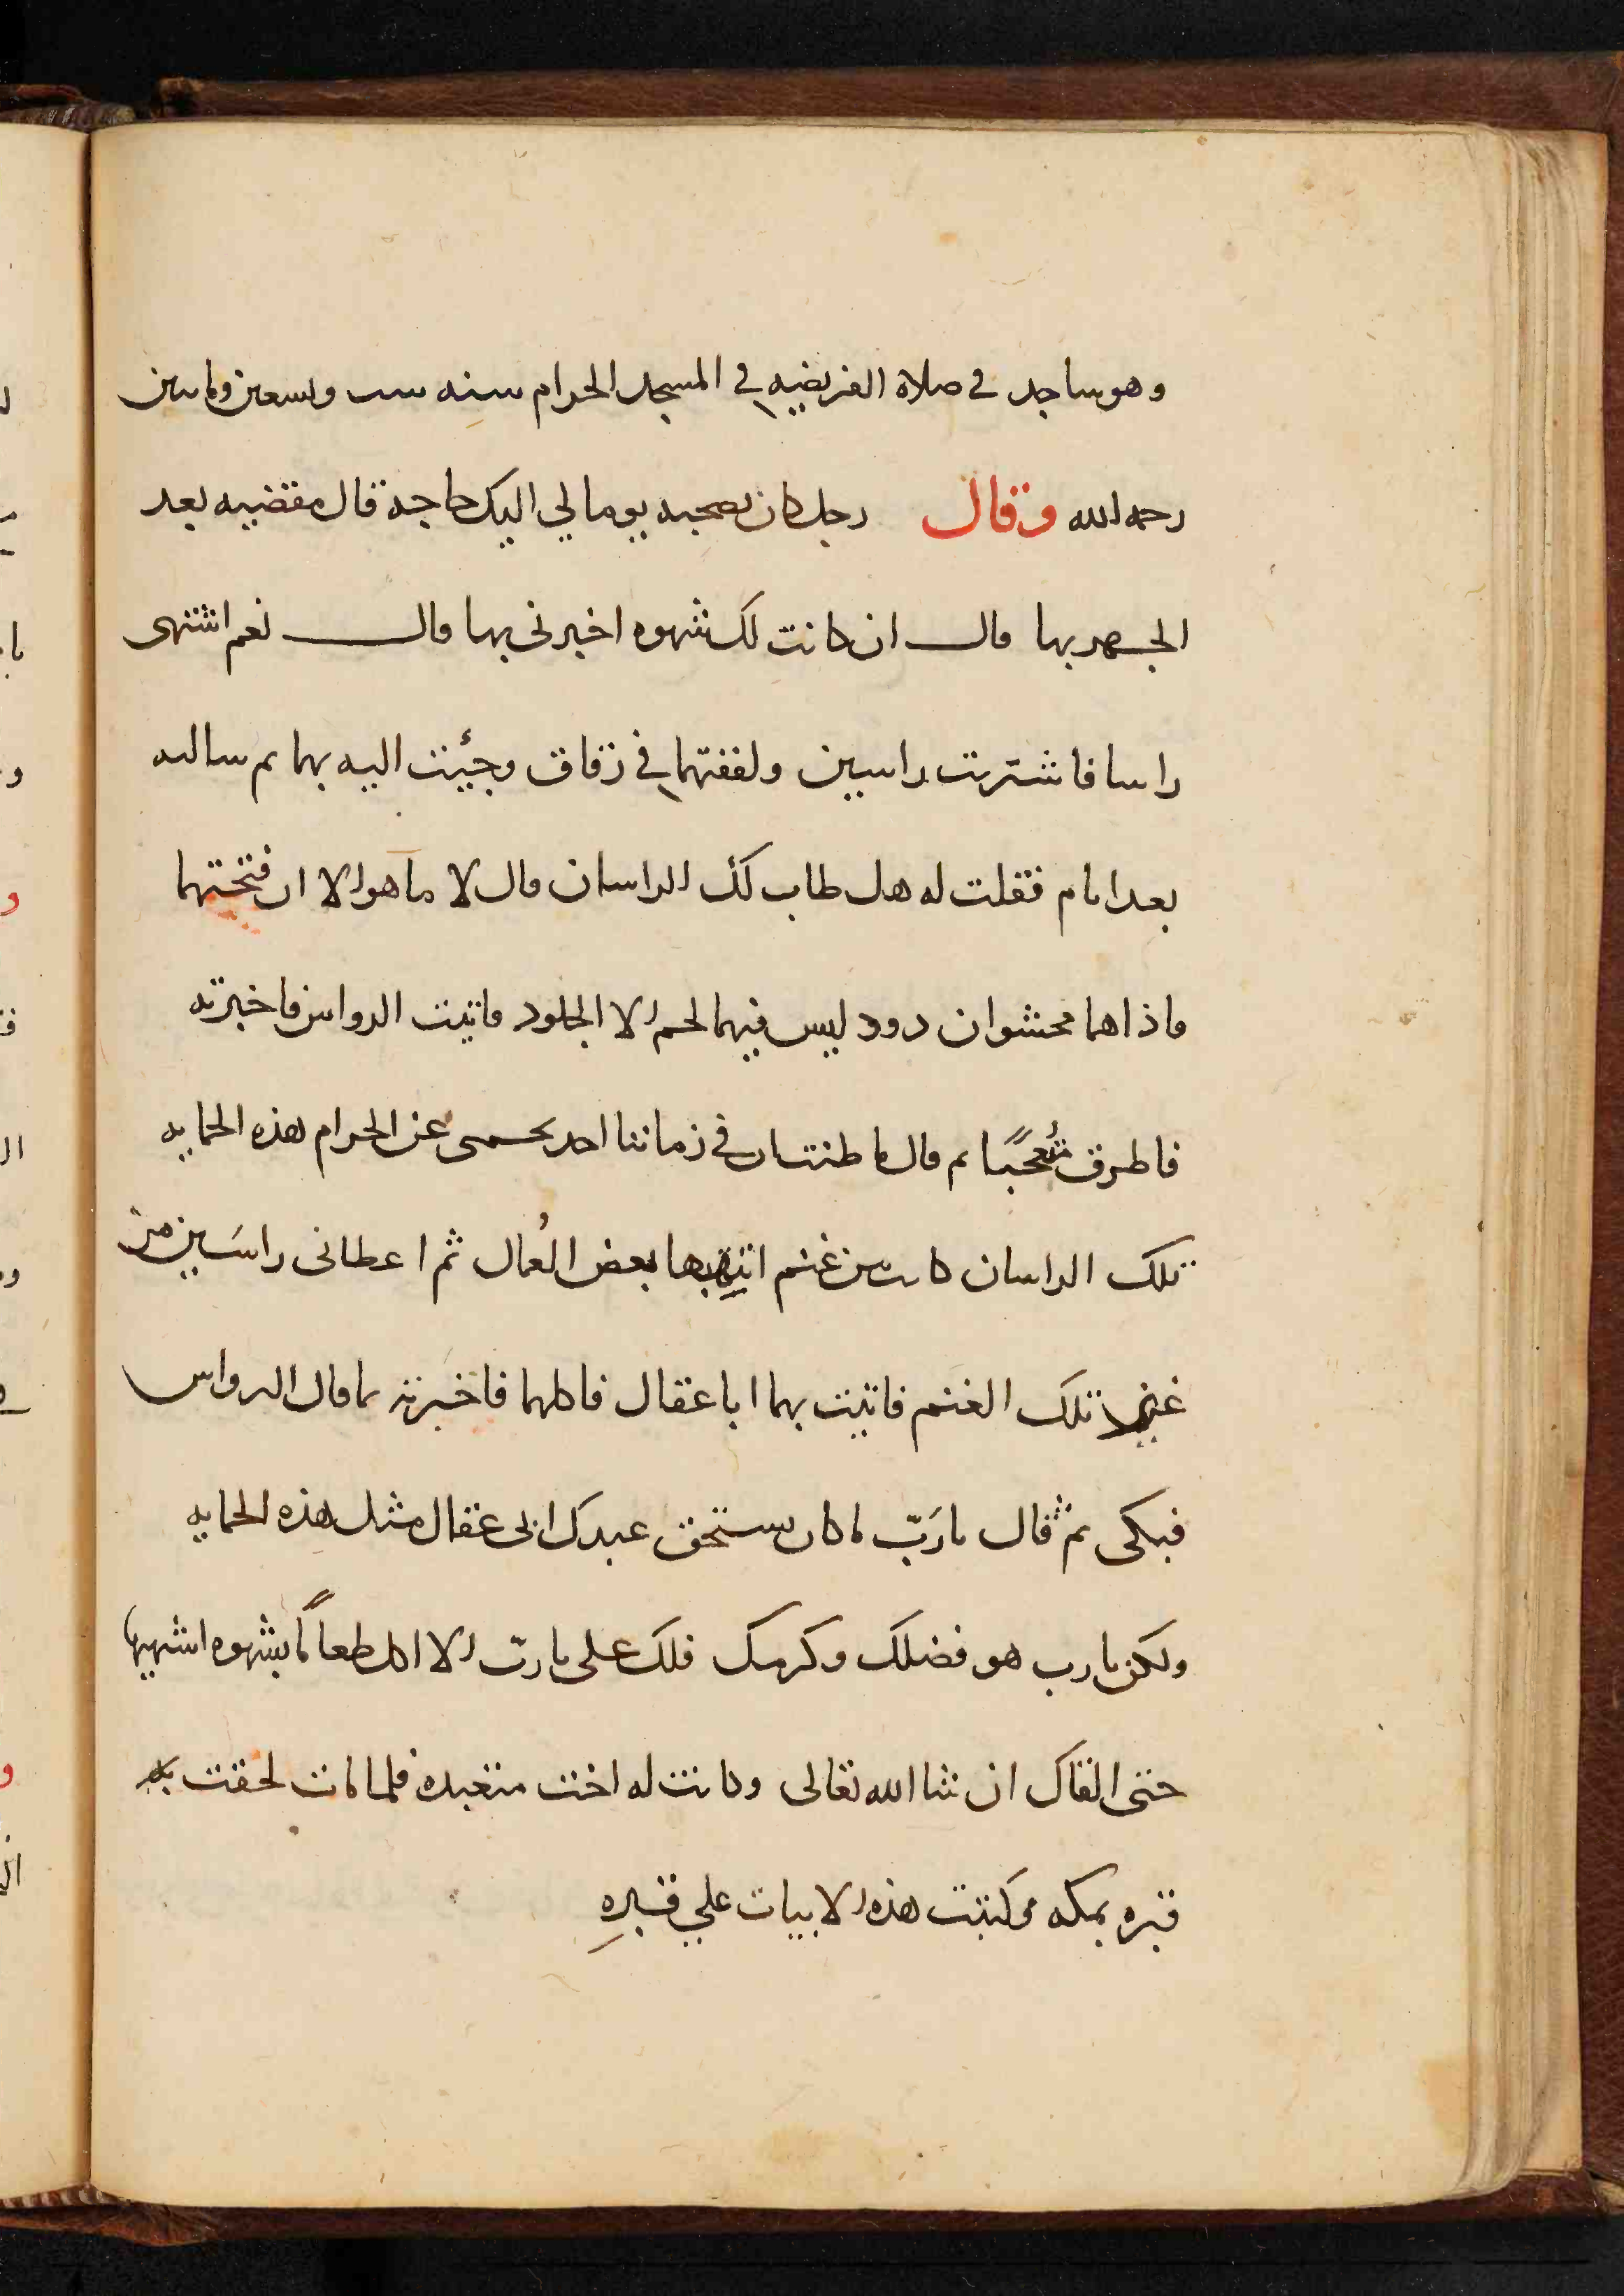 وهو ساجد في صلاة الفريضيه في المسجد الحرام سنه ست وتسعين ومايتين
رحمه الله وقال رجل كان يصحبه يوما لي اليك حاجة قال مقضيه بعد
الجهر بها قال ان كانت لك شهوه اخبرني بها قال نعم اشتهي
راسا فاشتريت راسين ولففتهما في زقاق وجئيت اليه بهما ثم سالته
بعد ايام فقلت له هل طاب لك الراسان قال لا ما هو الا ان فتحتهما
فاذا هما محشوان دود ليس فيهما لحم الا الجلود فاتيت الرواس فاخبرته
فاطرق متعجبًا ثم قال ما ظننت ان في زماننا احد يحمى عن الحرام هذه الحمايه
تلك الراسان كانت من غنم انتهبها بعض العُمال ثم اعطاني راسَين من
غير تلك الغنم فاتيت بهما ابا عقال فاكلهما فاخبرته بما قال الرواس
فبكى ثم قال يا رَبّ ما كان يستحق عبدك ابي عقال مثل هذه الحمايه
ولكن يا رب هو فضلك وكرمك فلك على يا ربّ الا اكل طعاماً بشهوه اشتهيها
حتى القاك ان شا الله تعالى وكانت له اخت متعبده فلما مات لحقت به
قبره بمكه وكتبت هذه الابيات علي قبرهِ